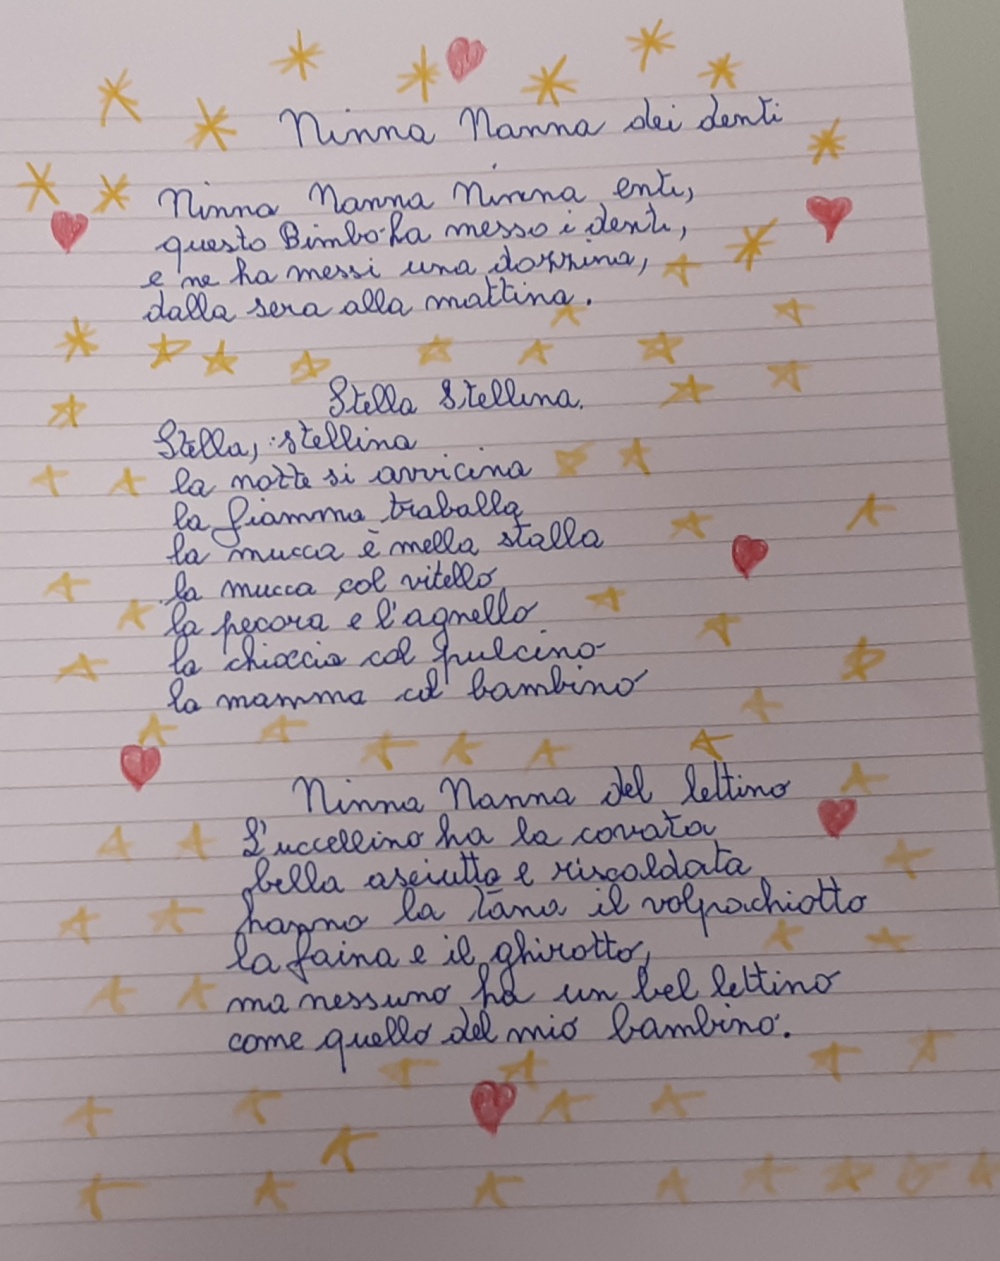 Ninna Nanna dei denti
Ninna Nanna Ninna enti,
questo Bimbo ha messo i denti,
e ne ha messi una dozzina,
dalla sera alla mattina.
Stella Stellina.
Stella, stellina
la notte si avvicina
la fiamma traballa
la mucca è nella stalla
la mucca col vitello
la pecora e l'agnello
la chioccia col pulcino
la mamma col bambino
Ninna Nanna del lettino
L'uccellino ha la covata
bella asciutta e riscaldata
hanno la tana il volpachiotto
la faina e il ghirotto,
ma nessuno ha un bel lettino
come quello del mio bambino.